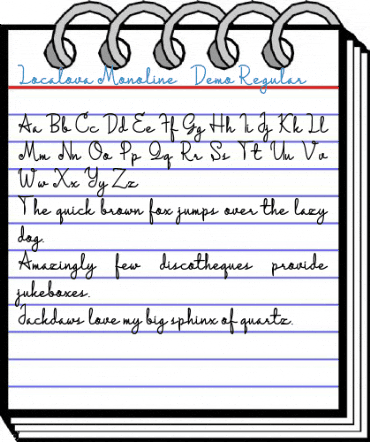 Locatova Monoline Demo Regular
Aa Bb Cc Dd Ee Ff Gg Hh Ii Jj Kk Ll
Mm Nn Oo Pp Qq Rr Ss Tt Uu Vv
Ww Xx Yy Zz
The quick brown fox jumps over the lazy
dog.
Amazingly few discotheques provide
jukeboxes.
Jackdaws love my big sphinx of quartz.